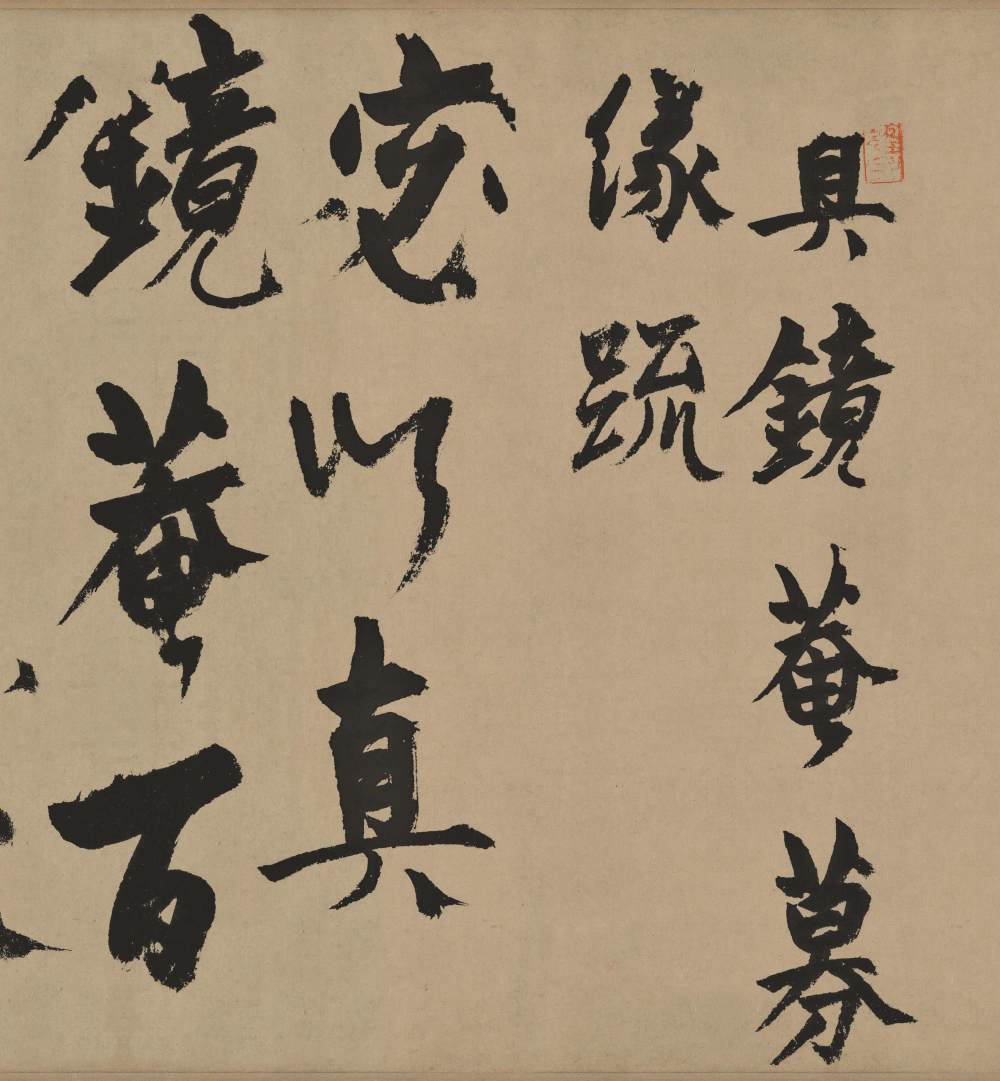 具鏡菴募
緣疏
竊以真
鏡菴百